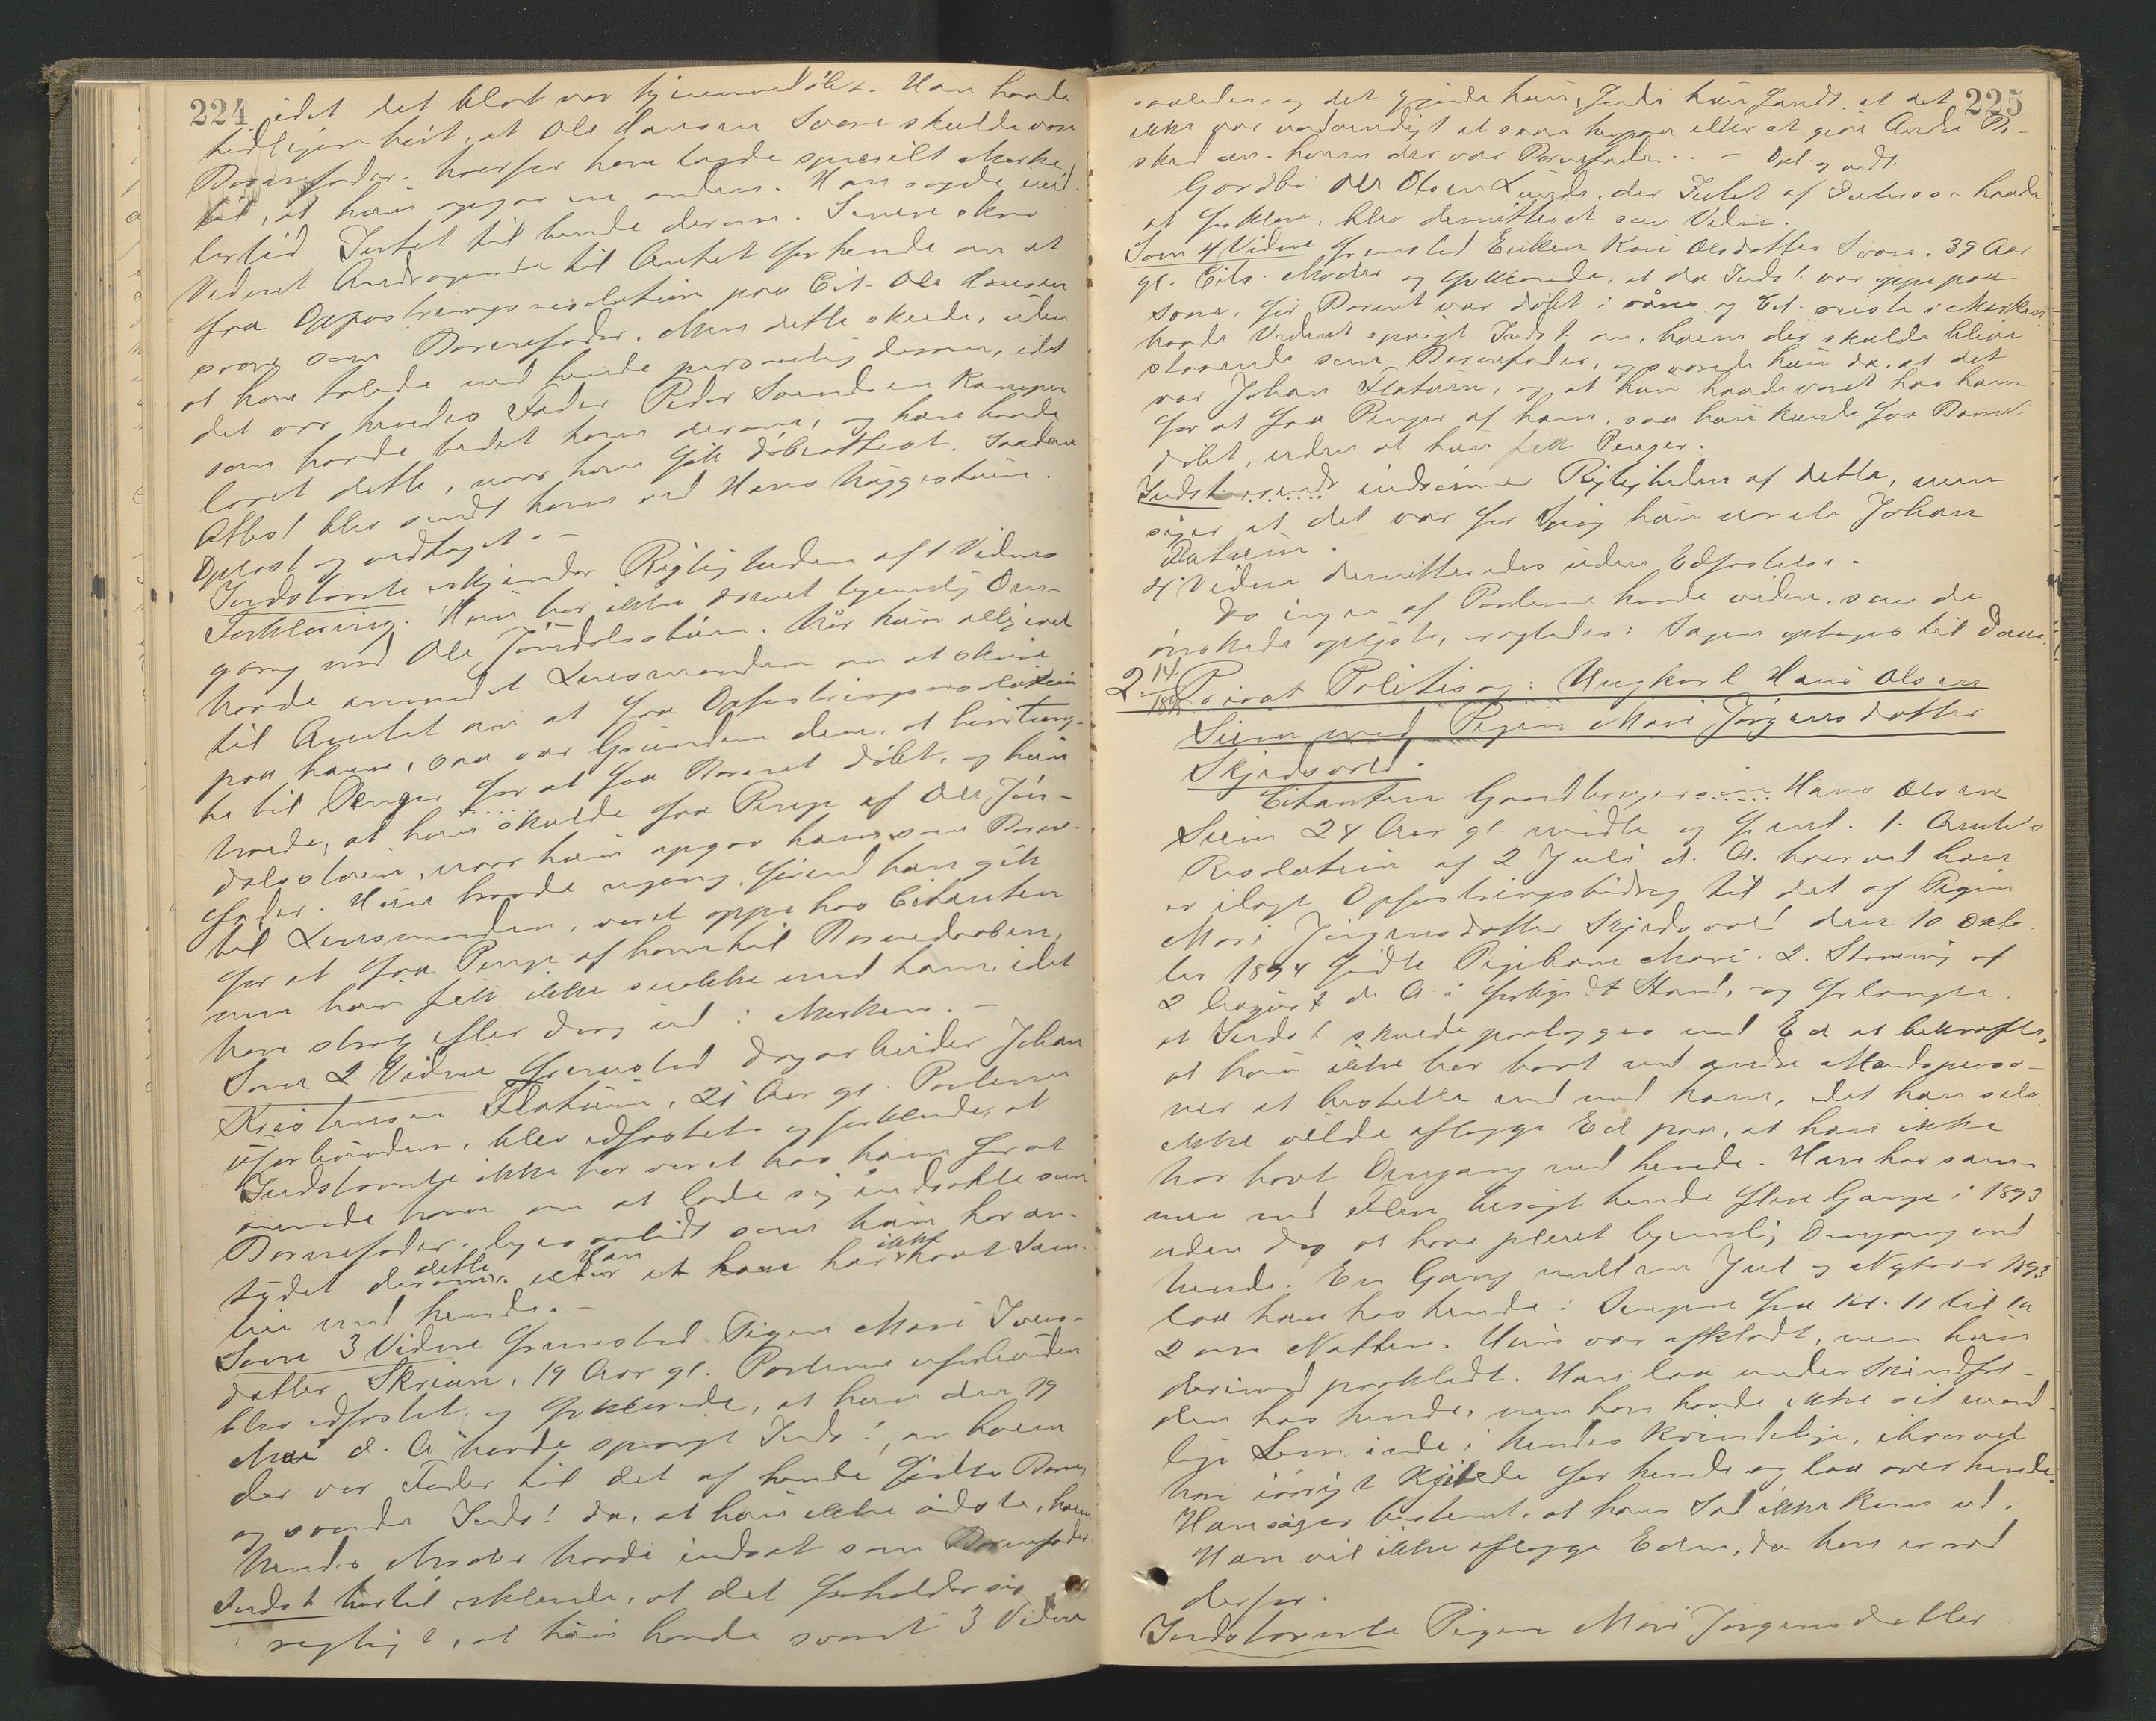 224
idet det blot var hjemmedøbt. Han havde
tidligere hørt, at Ole Hansen Svare skulde være
Barnefader, hvorfor han lagde specielt Mærke
til, at hun opgav en anden. Han sagde imid-
lertid Intet til hende derom. Senere skrev
Vidnet Andragende til Amtet for hende om at
faa Opfostringsresolution paa Cit. Ole Hansen
som Barnefader. Men dette skede, uden
at han talede med hende personlig derom, idet
det var hendes Fader Peder Svendsen Kampen
som havde bedet ham derom, og han havde
lovet dette, naar han fik Døbeattest. Saadan
Attest blev sendt ham ved Hans Høggestuen.
Oplæst og vedtaget. -
Indstævnte erkjender Rigtigheden af 1 Vidnes
Forklaring. Hun har ikke drevet legemlig Om-
gang med Ole Jøndalsstuen. Når hun alligevel
havde anmodet Lensmanden om at skrive
til Amtet om at faa Opfostringsresolution
paa ham, saa var Grunden den, at hun træng-
te til Penger for at faa Barnet døbt, og hun
troede, at hun skulde faa Penge af Ole Jøn-
dalsstuen, naar hun opgav ham som Barne-
fader. Hun havde engang, førend hun gik
til Lensmanden, været oppe hos Citanten
for at faa Penge af ham til Barnedaaben,
men hun fik ikke snakke med ham, idet
han strag efter drog ud i Marken. -
Som 2 Vidne fremstod Dagarbeider Johan
Kristensen Flatuin, 21 Aar gl. Parterne
uforbunden, blev edfæstet og forklarede, at
Indstævnte ikke har været hos ham for at
anmode ham om at lade sig indsætte som
Barnefader, ligesaalidt som hun har an-
tydet dette. Han har ikke havt Sam-
leie med hende. -
Som 3 Vidne fremstod Pigen Mari Ivers-
datter Skriun, 19 Aar gl. Parterne uforbunden
blev edfæstet, og forklarede, at hun den 19
Mai d. A. havde spurgt Indst., om hvem
der var Fader til det af hende fødte Barn,
og svarede Indst. da, at hun ikke vidste, hvem
hendes Moder havde indsat som Barnefader.
Indst. hertil erklærede, at det forholder sig
rigtigt, at hun havde svart 3 Vidne
225
saaledes, og det gjorde hun, fordi hun fandt, at det
ikke var nødvendigt at svare herpaa eller at give Andre Be-
sked om hvem der var Barnefader. - Opl. og vedt.
Gardbr. Ole Olsen Lunde, der Intet af Interesse havde
at forklare, blev demitteret som Vidne.
Som 4 Vidne fremstod Enken Kari Olsdatter Svare, 39 Aar
gl. Cits. Moder og forklarede, at da Indst. var oppe paa
Svare, før Barnet var døbt og Cit. reiste i Marken
havde Vidnet spurgt Indst. om, hvem der skulde blive
staaende som Barnefader, og svarede hun da, at det
var Johan Flatuin, og at hun havde været hos ham
for at faa Penger af ham, saa hun kunde faa Barnet
døbt, uden at hun fik Penger.
Indst. indrømmer Rigtigheden af dette, men
siger at det var for Spøg hun nævnte Johan
Flatuin.
4 Vidne demitteredes uden Edfæstelse.
Da ingen af Parterne havde videre, som de
ønskede oplyst, vagtedes: Sagen optages til Doms.
2 14/1895 Privat Politisag: Ungkarl Hans Olsen
Siem mod Pigen Mari Jørgensdatter
Skjedsvold.
Citanten Gaardbruger Hans Olsen
Siem 24 Aar gl. mødte og freml. 1. Amtets
Resolution af 2 Juli d. A. hvorved han
er ilagt Opfostringsbidrag til det af Pigen
Mari Jørgensdatter Skjedsvold den 10 Okto-
ber 1894 fødte Pigebarn Mari. 2. Stævning af
2 August d. A. i forkyndt Stand, og forlangte,
at Indst. skulde paalægges med Ed at bekræfte,
at hun ikke har havt med andre Mandsperso-
ner at bestille end med ham, idet han selv
ikke vilde aflægge Ed paa, at han ikke
har havt Omgang med hende. Han har sam-
men med Flere besøgt hende flere Gange i 1893
uden dog at have pleiet legemlig Omgang med
hende. En Gang mellem Jul og Nytaar 1893
laa han hos hende i Sengen fra Kl. 11 til 1 a
2 om Natten. Hun var afklædt, men han
derimod paaklædt. Han laa under Skindfel-
den hos hende, men han havde ikke sit mand-
lige Lem inde i hendes kvindelige, ihvorvel
han iøvrigt kjilede for hende og laa over hende.
Han siger bestemt, at hans Sæd ikke kom ud.
Han vil ikke aflægge Eden, da han er ræd
derfor.
Indstævnte Pigen Mari Jørgensdatter